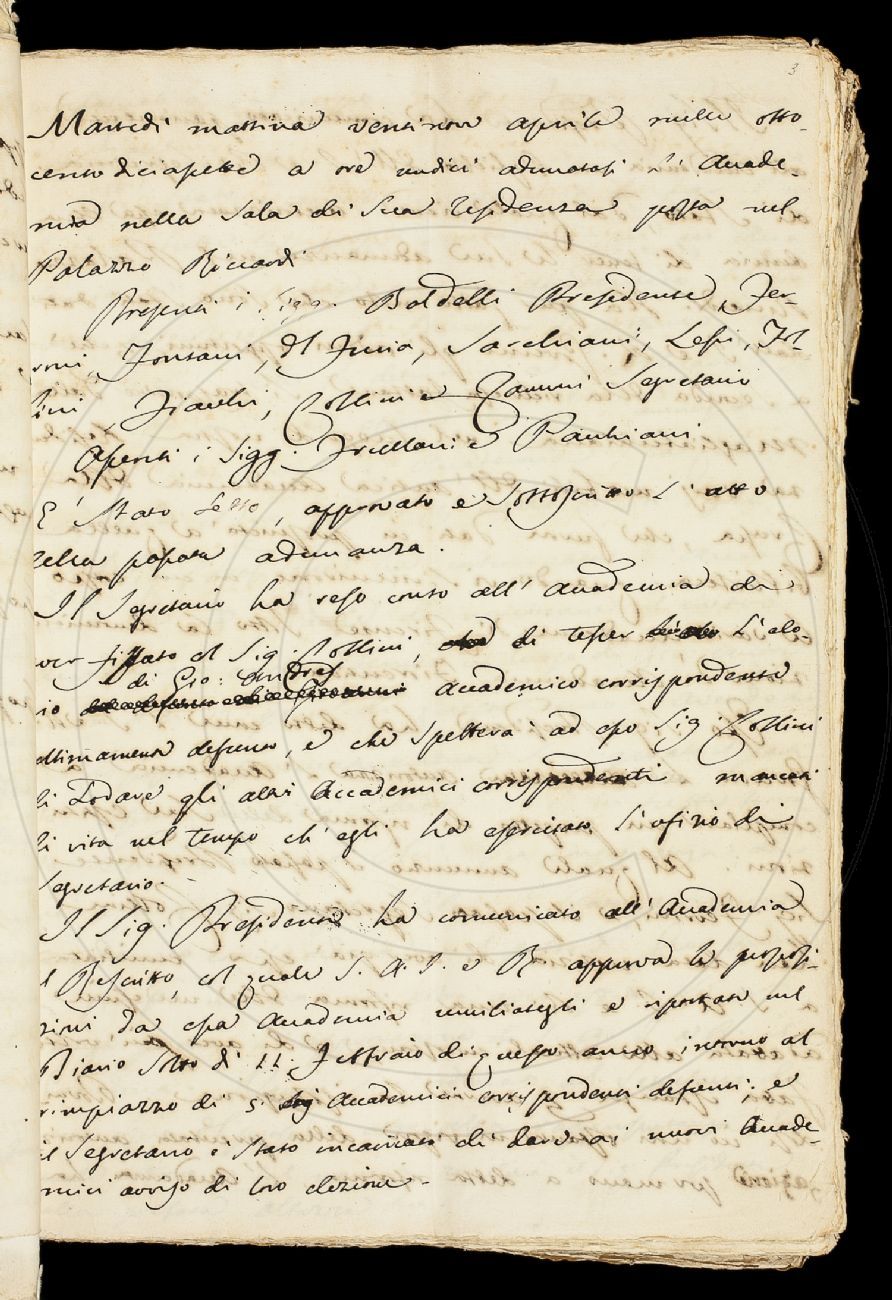 3
Martedì mattina ventinove aprile mille otto-
cento diciasette a ore undici adunatasi l' Accade-
mia nella Sala di Sua residenza posta nel
Palazzo Riccardi
Presenti i Sigg. Baldelli Presidente, Fer-
roni, Fontani, Del Furia, Sarchiani, Lessi, Fol-
lini, Fiacchi, Collini e Zannoni Segretario
Assenti i Sigg. Arcellani e Pauchiani
E' Stato Letto, approvato e Sottoscritto l' atto
della passata adunanza.
Il Segretario ha reso conto all' Accademia di
aver fissato al Sig. Collini, di tesser l' elo-
di Gio:
io accademico corrispondente
ultimamente defunto, e che spetterà ad esso Sig. Collini
di Lodare gli altri Accademici corrispondenti mancati
di vita nel tempo ch' egli ha esercitato l' ofizio di
Segretario.
Il Sig. Presidente ha comunicato all' Accademia
l Rescritto, col quale S. A. I. e R. approva le proposi-
zioni da essa Accademia umiliategli e riportate nel
Diario Sotto dì 11. Febbraio di questo anno intorno al
rimpiazzo di 5. Accademici corrispondenti defunti; e
il Segretario è Stato incaricato di dare ai nuovi Accade-
mici avviso di loro elezione.